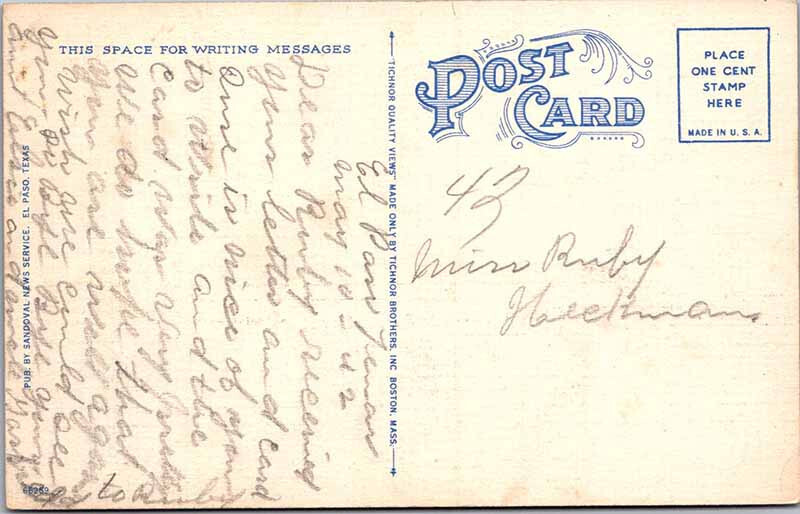 THIS SPACE FOR WRITING MESSAGES
El Paso Texas
May 10 - 42
Dear Ruby received
your letter and card
Ruse is nice of you
to write and the
card was very pretty
We do hope that
you are well again
Wish we could see
you
to Ruby
PUB. BY SANDOVAL NEWS SERVICE, EL PASO, TEXAS
68252
TICHNOR QUALITY VIEWS" MADE ONLY BY TICHNOR BROTHERS, INC BOSTON, MASS.
POST
CARD
PLACE
ONE CENT
STAMP
HERE
MADE IN U. S. A.
43
Miss Ruby
Heckman